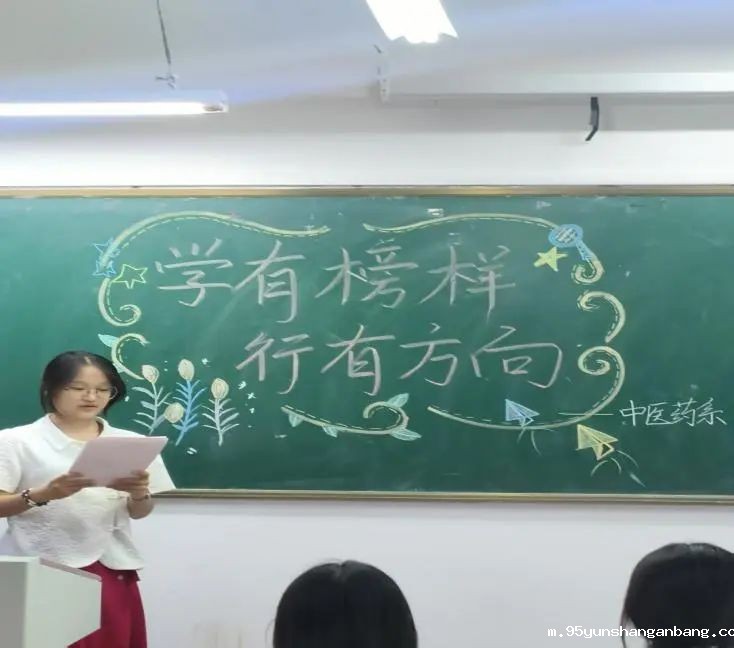 学有榜样
行有方向
——中医药系
m.95yunshanganbang.co